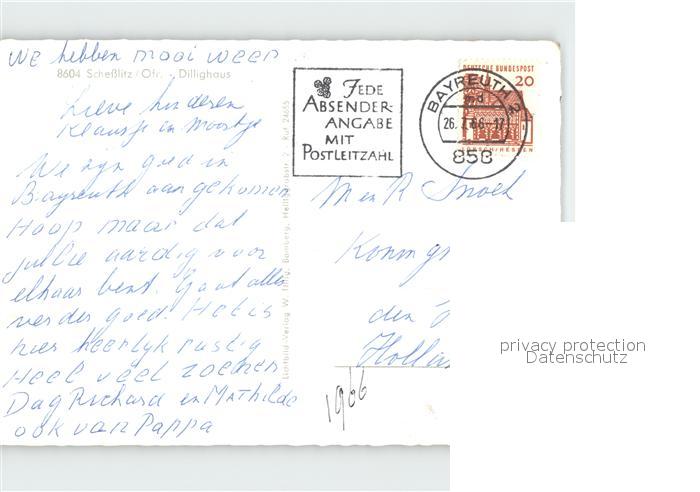 We hebben mooi weer
8604 Scheßlitz/Ofr. - Dillighaus
Lieve kinderen
Klaasje en Moortje
We zyn goed in
Bayreuth aangekomen
Hoop maar dat
jullie aardig voor
elkaar bent. Gaat alles
verder goed. Het is
hier heerlyk rustig
Heel veel zoenen
Dag Richard en Mathilde
ook van Pappa
Lichtbild-Verlag W. Bamberg, Ruf 24655
JEDE
ABSENDER-
ANGABE
MIT
POSTLEITZAHL
BAYREUTH 2
md
26.7.66-17
858
DEUTSCHE BUNDESPOST
20
LORSCH/HESSEN
M en R Snoek
Konings
den
Hollan
1966
privacy protection
Datenschutz